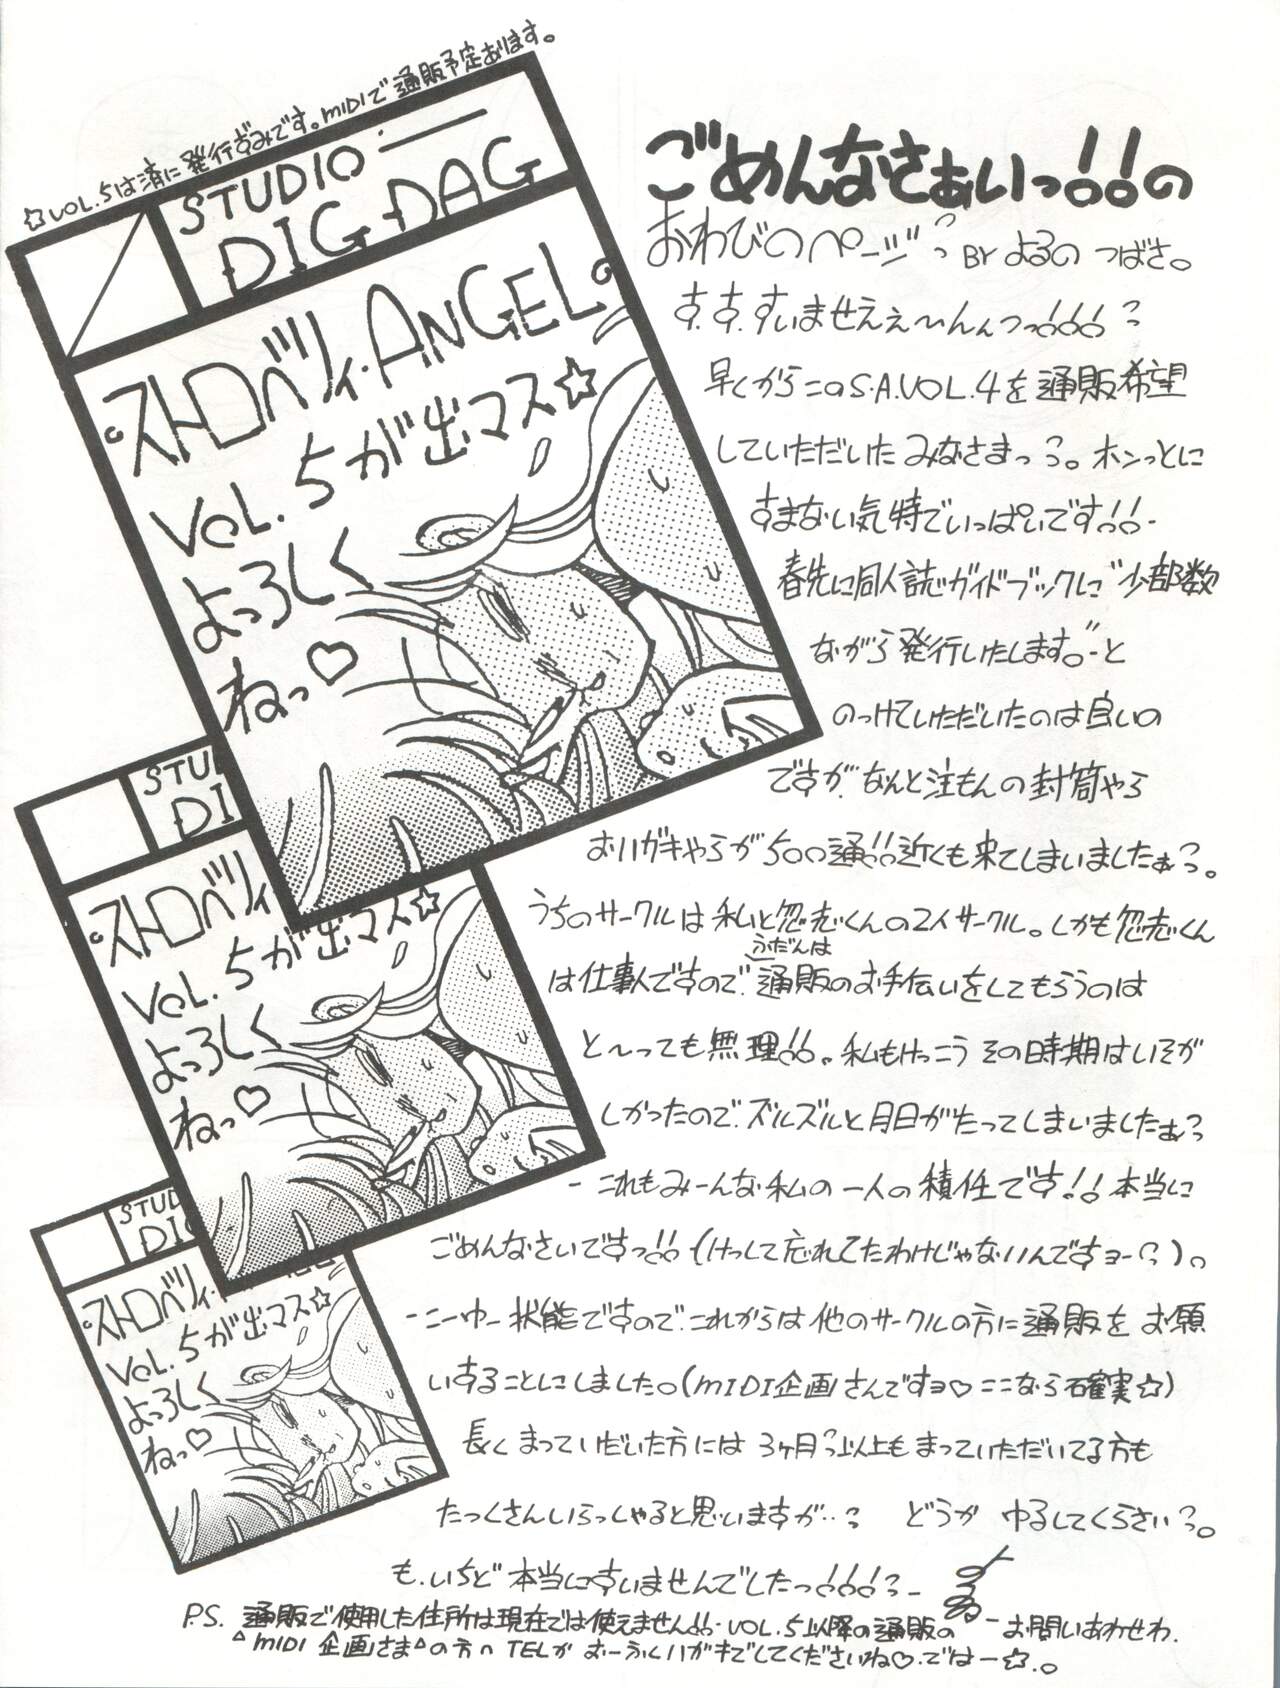 ☆VOL.5は済に発行ずみです。MIDIで通販予定あります。
STUDIO
DIG DAG
ストロベリィ・ANGEL
VOL.5が出マス☆
よっろしく
ねっ♡
STU
DI
ストロベリィ
VOL.5が出マス☆
よっろしく
ねっ♡
STUD
DIG
ストロベリィ
VOL.5が出マス☆
よっろしく
ねっ♡
ごめんなさぁいっ!!の
おわびのページっ BY よるの つばさ。
す.す.すいませえぇ〜んんっっ!!!っ
早くからこのS.A.VOL.4を通販希望
していただいたみなさまっっ。ホンっとに
すまない気持でいっぱいです!!-
春先に同人誌ガイドブックに"少部数
ながら発行いたします。"-と
のっけていただいたのは良いの
ですが、なんと注もんの封筒やら
おハガキやらが500通!!近くも来てしまいましたぁっ。
うちのサークルは私と くんの2人サークル。しかも くん
は仕事人ですので、通販のお手伝いをしてもらうのは
ふだんは
と〜っても無理!!。私もけっこうその時期はいそが
しかったので、ズルズルと月日がたってしまいましたぁっ
-これもみーんな私の一人の積任です!!本当に
ごめんなさいですっ!!(けっして忘れてたわけじゃないんですョーっ)。
-こーゆー状態ですので、これからは他のサークルの方に通販をお願
いすることにしました。(MIDI企画さんですョ♡ここなら確実☆)
長くまっていだいた方には3ヶ月っ以上もまっていただいてる方も
たっくさんいらっしゃると思いますが‥っ どうか ゆるしてくらさいっ。
も.いちど本当にすいませんでしたっ!!!っ-
P.S. 通販で使用した住所は現在では使えません!!・VOL.5以降の通販の お問いあわせわ.
"MIDI企画さま"の方へTELか おーふくハガキでしてくださいね♡.ではー☆.。